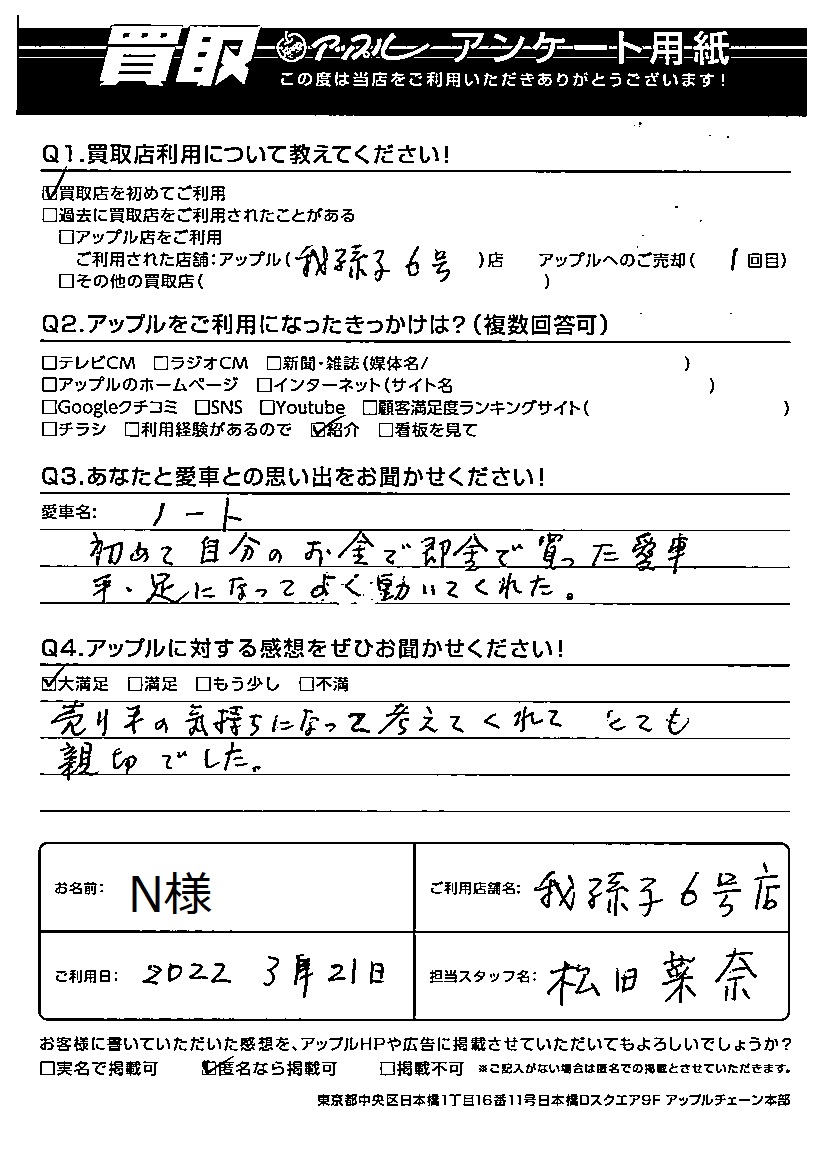 買取 アップル アンケート用紙
この度は当店をご利用いただきありがとうございます!
Q1.買取店利用について教えてください!
☑買取店を初めてご利用
□過去に買取店をご利用されたことがある
□アップル店をご利用
ご利用された店舗:アップル(我孫子6号)店 アップルへのご売却(1回目)
□その他の買取店( )
Q2.アップルをご利用になったきっかけは?(複数回答可)
□テレビCM □ラジオCM □新聞・雑誌(媒体名/ )
□アップルのホームページ □インターネット(サイト名 )
□Googleクチコミ □SNS □Youtube □顧客満足度ランキングサイト( )
□チラシ □利用経験があるので ☑紹介 □看板を見て
Q3.あなたと愛車との思い出をお聞かせください!
愛車名: ノート
初めて自分のお金で即金で買った愛車
手・足になってよく動いてくれた。
Q4.アップルに対する感想をぜひお聞かせください!
☑大満足 □満足 □もう少し □不満
売り手の気持ちになって考えてくれて とても
親切でした。
お名前: N様 ご利用店舗名: 我孫子6号店
ご利用日: 2022 3月21日 担当スタッフ名: 松田菜奈
お客様に書いていただいた感想を、アップルHPや広告に掲載させていただいてもよろしいでしょうか?
□実名で掲載可 ☑匿名なら掲載可 □掲載不可 ※ご記入がない場合は匿名での掲載とさせていただきます。
東京都中央区日本橋1丁目16番11号日本橋Dスクエア9F アップルチェーン本部